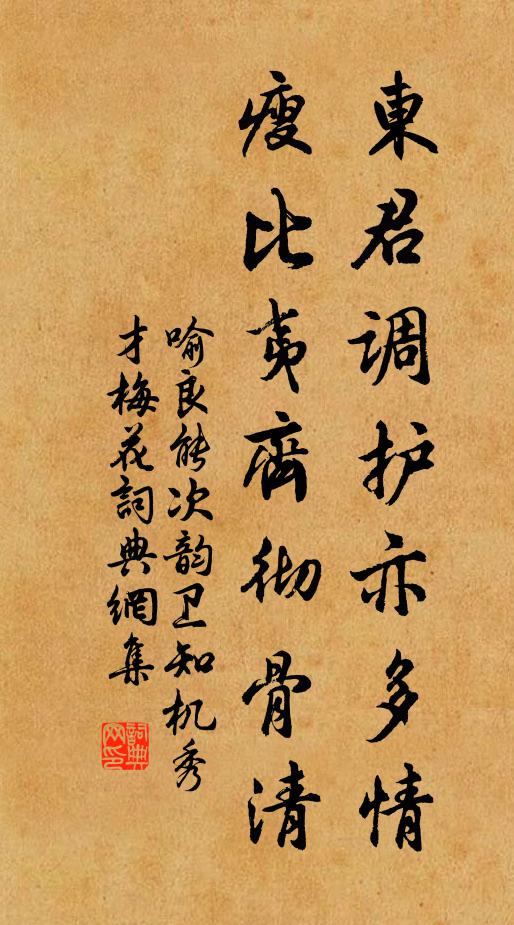 東君调护亦多情
瘦比夷齊彻骨清
喻良能次韵卫知机秀
才梅花詞典網集
詞典網印